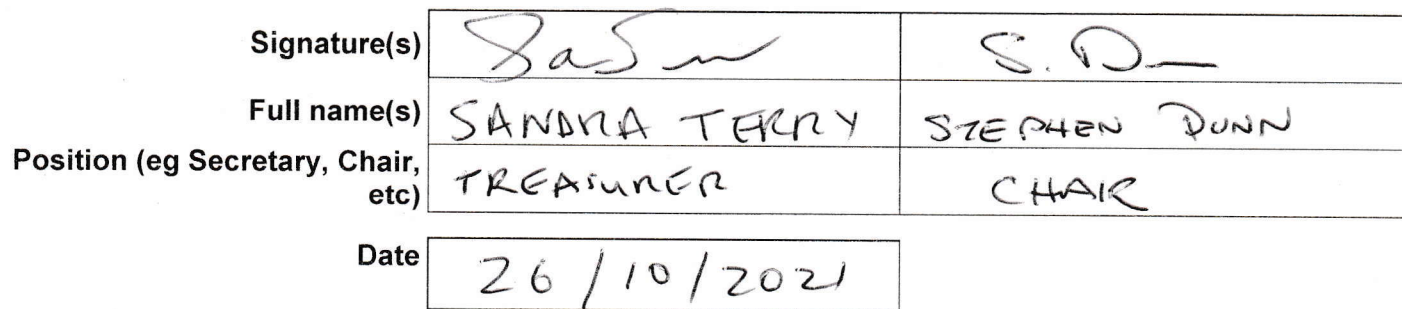 Signature(s) S. D
Full name(s) SANDRA TERRY STEPHEN DUNN
Position (eg Secretary, Chair,
etc) TREASURER CHAIR
Date 26/10/2021